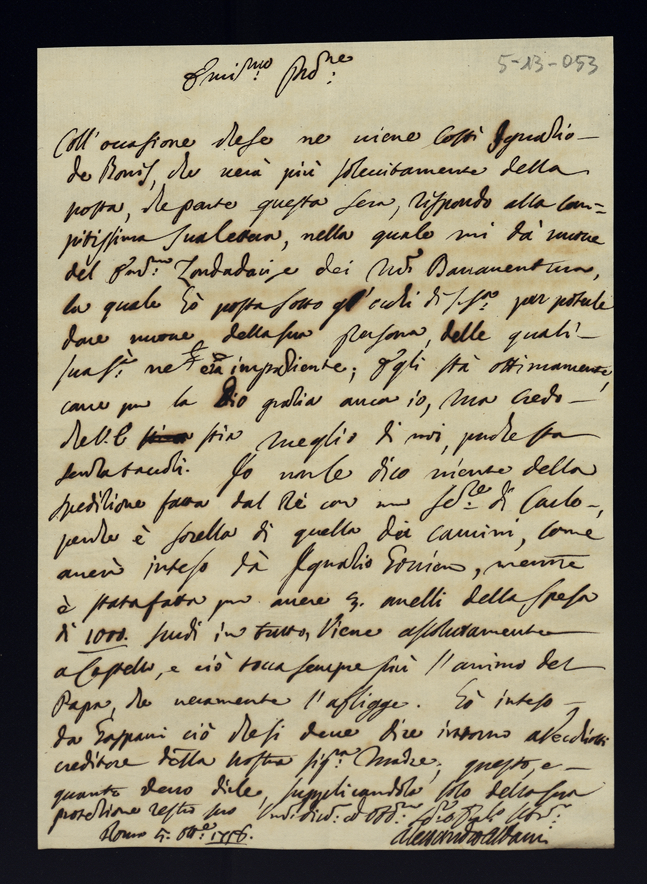 5-13-053
Em̃i.mo Prõne
Coll'occasione che se ne viene costì Ignatio
de Bonis, che verà più sollecitamente della
posta, che parte questa sera, rispondo alla com=
pitissima sua lettera, nella quale mi dà nuove
del Zondadari e dei Bonaventura,
la quale hò posta sotto gl'occhi di S. S.tà per potele
dare nuove della sua persona, delle quali
sua S.tà ne era impatiente; Egli stà ottimamente,
come per la Dio gratia anco io, ma credo
che V. E. stia meglio di noi, perche sta
senza Io non le dico niente della
speditione fatta dal Rè con un di Carlo,
perche è sorella di quella dei camini, come
averà inteso dà Ignatio, mentre
è stata fatta per avere 3. anelli della spesa
di 1000. scudi in tutto, Viene assolutamente
a Castello, e ciò tocca sempre più l'animo del
Papa, che veramente l'affligge. Hò inteso
da Gaspari ciò che si deve dire intorno a
creditore della nostra Sig.ra Madre; questo, e
quanto devo dirle, supplicandola solo della sua
protettione resto suo
Roma 5. Ott.e 1716.
Alessandro Albani